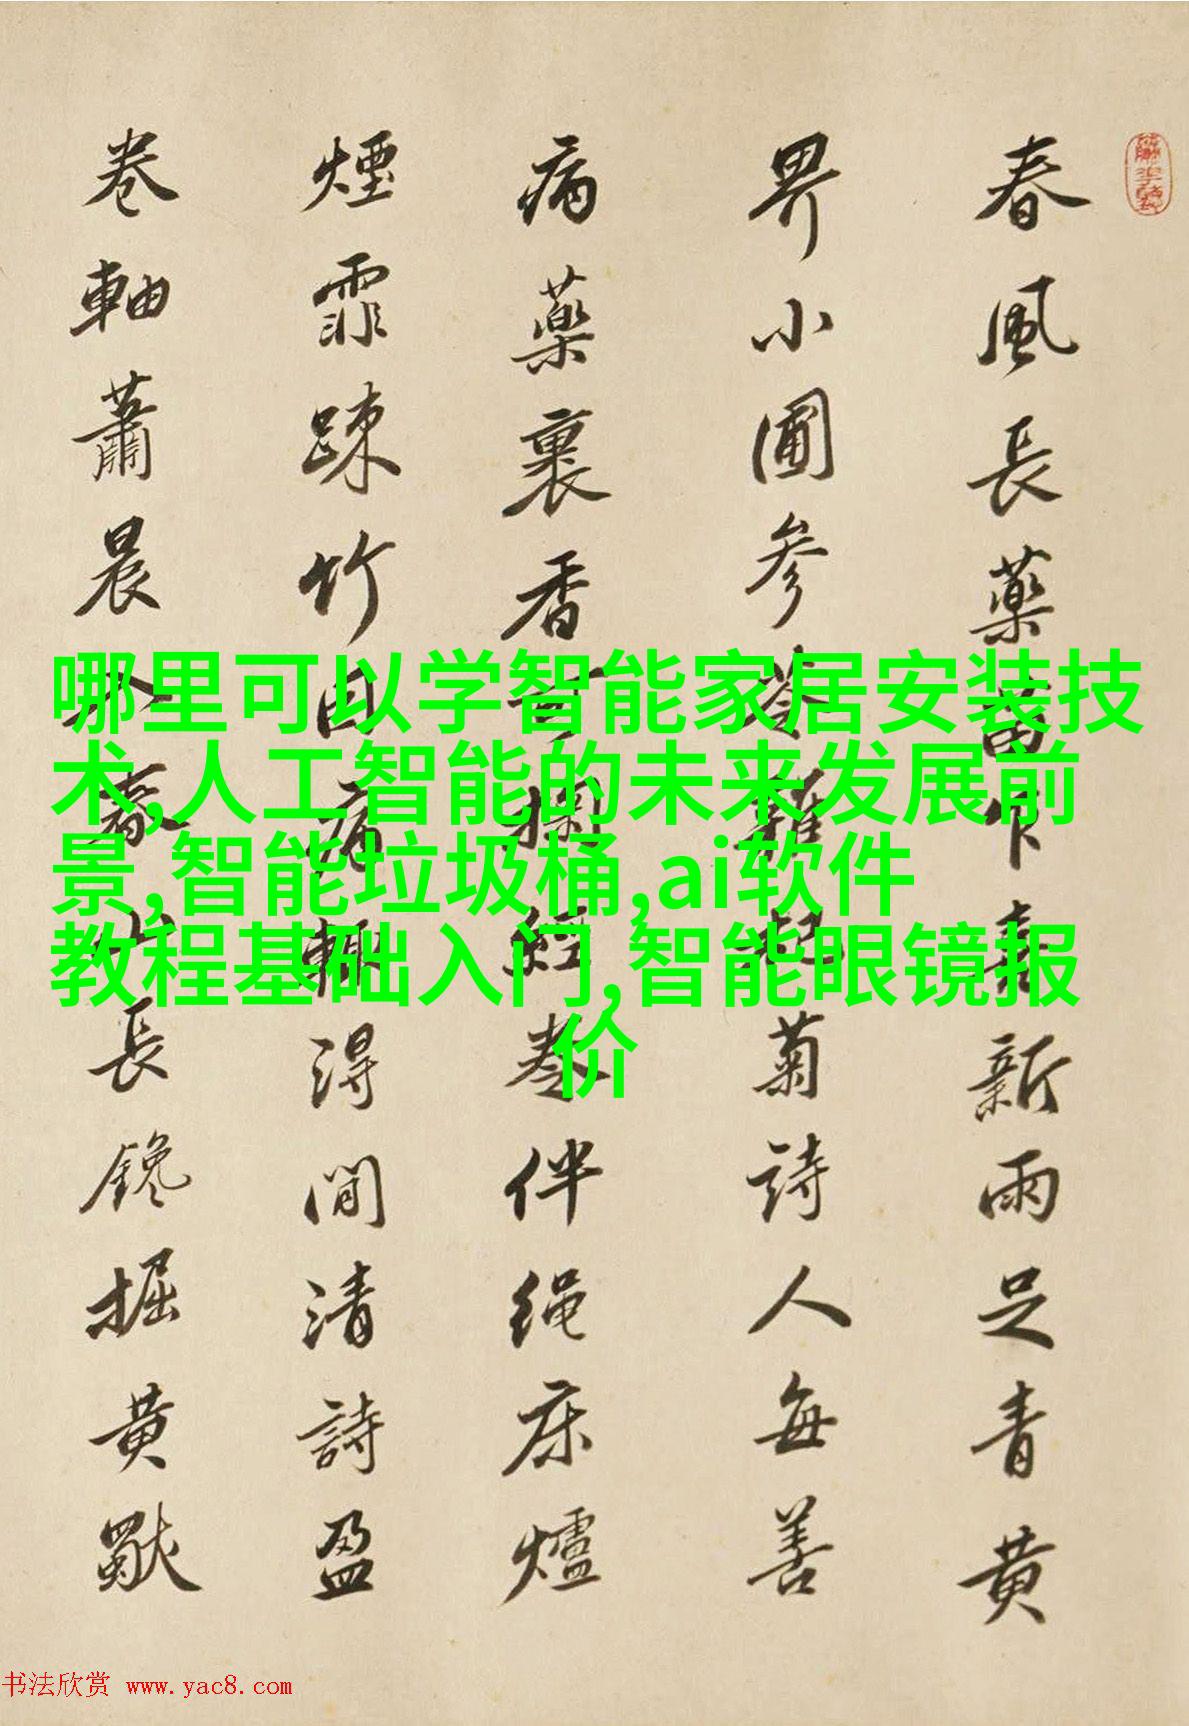 哪里可以学智能家居安装技
术,人工智能的未来发展前
景,智能垃圾桶,ai软件
教程基础入门,智能眼镜报
价
春風長藥苗乍喜新雨足青黃
界小圃參苓雜杞菊詩人每善
病藥裹香可掬經卷伴绳床爐
煙霏疎竹因病輒得閒清詩盈
卷軸蕭晨入山長鑱掘黃
书法欣赏 www.yac8.com